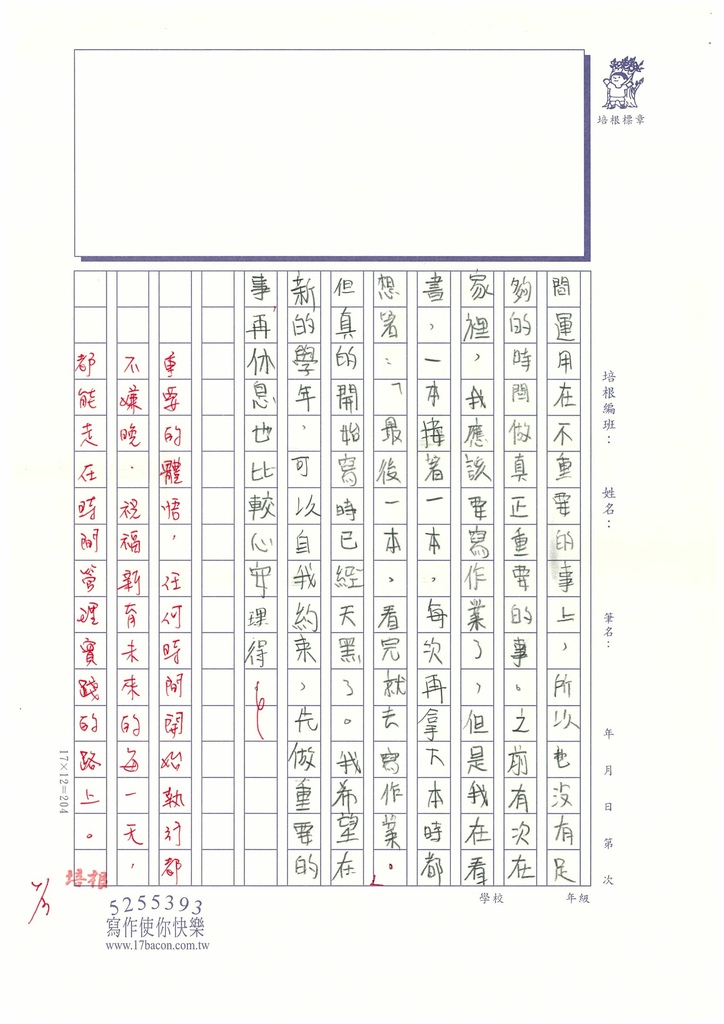 培根標章
培根編班：
姓名：
筆名：
年 月 日 第 次
學校
年級
間運用在不重要的事上，所以也沒有足
夠的時間做真正重要的事。之前有次在
家裡，我應該要寫作業了，但是我在看
書，一本接著一本，每次再拿下本時都
想著：「最後一本，看完就去寫作業。」
但真的開始寫時已經天黑了。我希望在
新的學年，可以自我約束，先做重要的
事，再休息也比較心安理得
重要的體悟，任何時間開始執行都
不嫌晚，祝福新育未來的每一天，
都能走在時間管理實踐的路上。
17×12=204
培根
5255393
寫作使你快樂
www.17bacon.com.tw